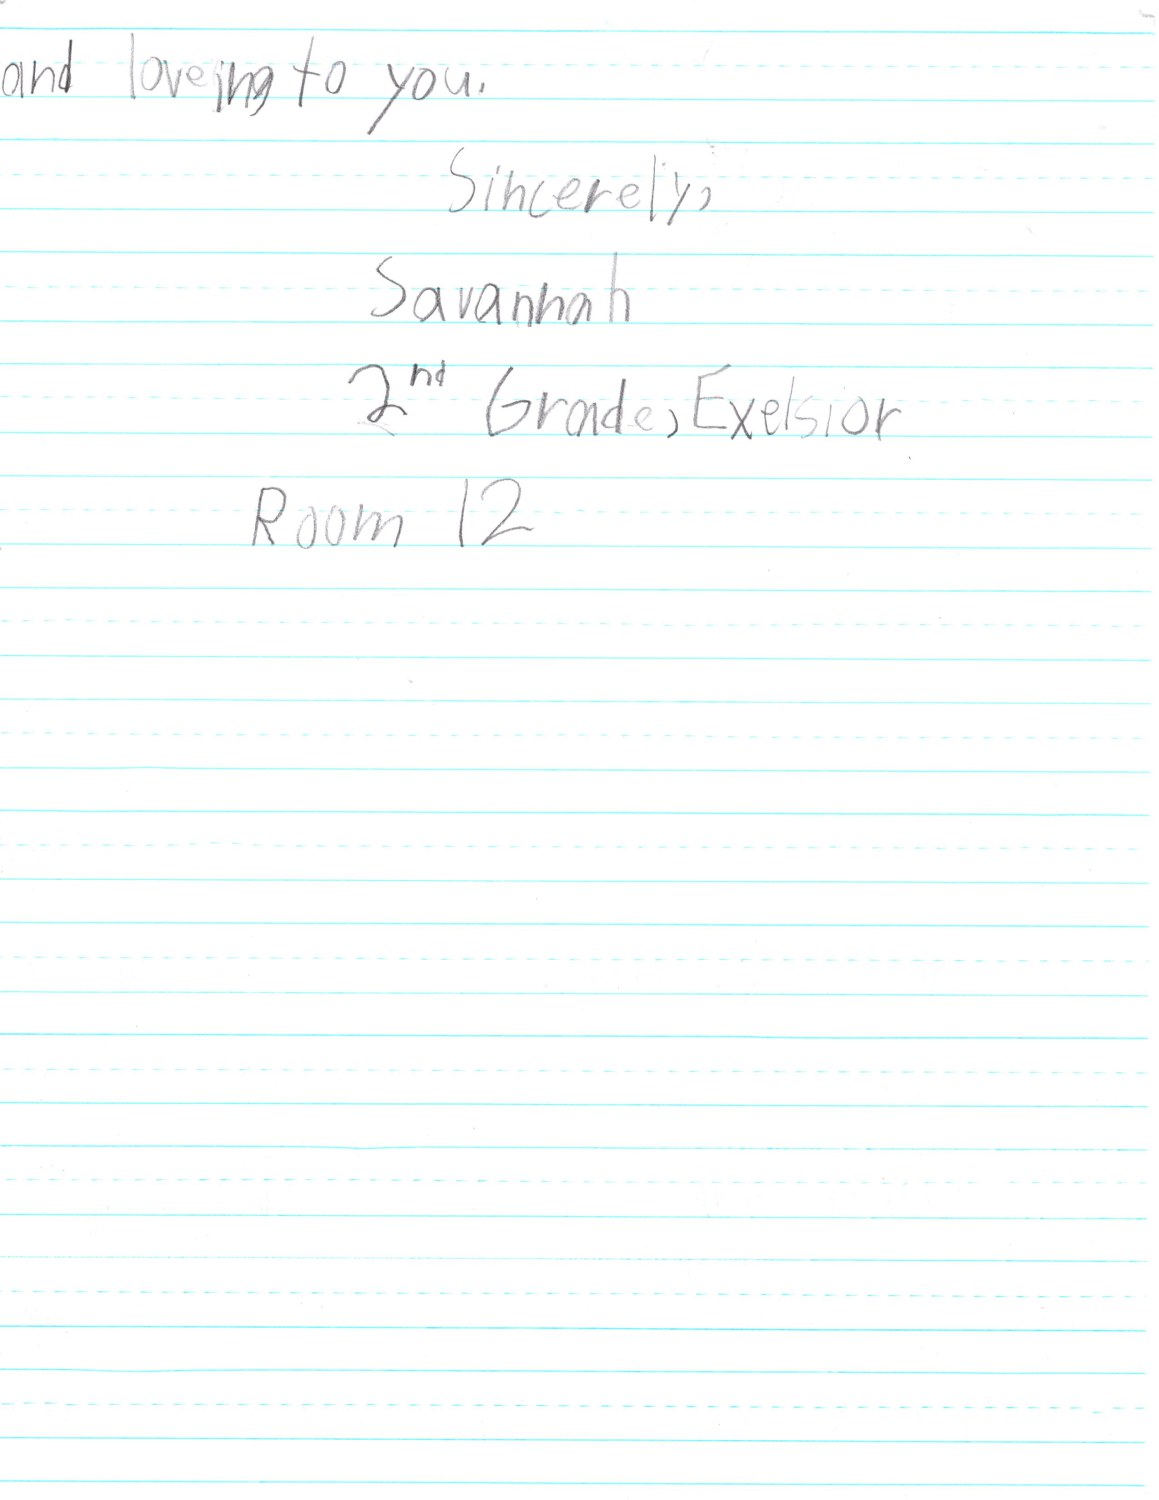 and loveing to you.
Sincerely,
Savannah
2nd Grade, Exelsior
Room 12